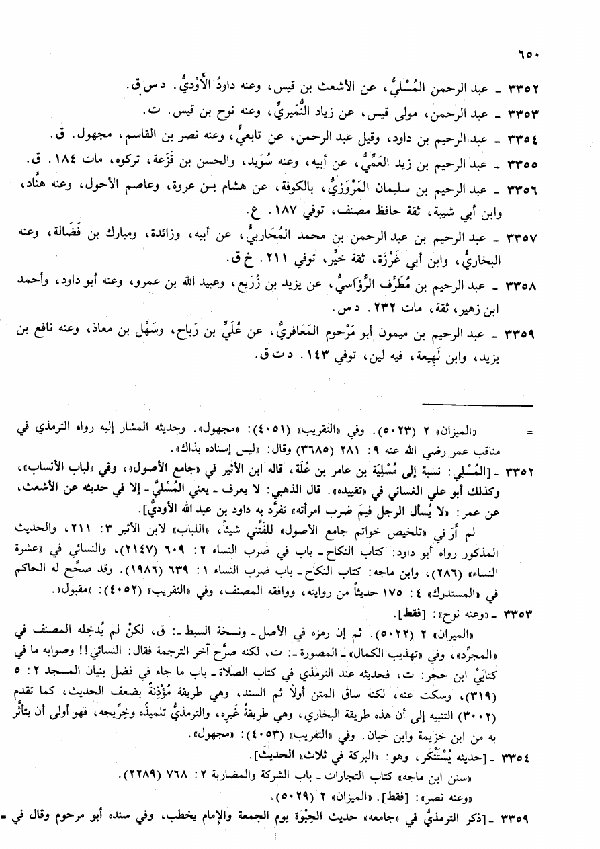 ٦٥٠
٣٣٥٢ ـ عبد الرحمن المُسْليُّ، عن الأشعث بن قيس، وعنه داودُ الأَوْديُّ. د س ق.
٣٣٥٣ ـ عبد الرحمن، مولى قيس، عن زياد النُّمَيريِّ، وعنه نوح بن قيس. ت.
٣٣٥٤ ـ عبد الرحيم بن داود، وقيل عبد الرحمن، عن تابعيٍّ، وعنه نصر بن القاسم، مجهول. ق.
٣٣٥٥ ـ عبد الرحيم بن زيد العَمِّيُّ، عن أبيه، وعنه سُوَيد، والحسن بن قَزَعة، تركوه، مات ١٨٤. ق.
٣٣٥٦ ـ عبد الرحيم بن سليمان المَرْوَزيُّ، بالكوفة، عن هشام بن عروة، وعاصم الأحول، وعنه هنَّاد،
وابن أبي شيبة، ثقة حافظ مصنف، توفي ١٨٧. ع.
٣٣٥٧ ـ عبد الرحيم بن عبد الرحمن بن محمد المُحَاربيُّ، عن أبيه، وزائدة، ومبارك بن فَضَالة، وعنه
البخاريُّ، وابن أبي غَرَزة، ثقة خيِّر، توفي ٢١١. خ ق.
٣٣٥٨ ـ عبد الرحيم بن مُطَرِّف الرُّؤَاسيُّ، عن يزيد بن زُرَيع، وعبيد الله بن عمرو، وعنه أبو داود، وأحمد
ابن زهير، ثقة، مات ٢٣٢. د س.
٣٣٥٩ ـ عبد الرحيم بن ميمون أبو مَرْحوم المَعَافريُّ، عن عُلَيِّ بن رَباح، وسَهْل بن معاذ، وعنه نافع بن
يزيد، وابن لَهيعة، فيه لين، توفي ١٤٣. د ت ق.
= «الميزان» ٢ (٥٠٢٣). وفي «التقريب» (٤٠٥١): «مجهول». وحديثه المشار إليه رواه الترمذي في
مناقب عمر رضي الله عنه ٩: ٢٨١ (٣٦٨٥) وقال: «ليس إسناده بذاك».
٣٣٥٢ ـ [المُسْلي: نسبة إلى مُسْلِيَة بن عامر بن عُلَة، قاله ابن الأثير في «جامع الأصول»، وفي «لباب الأنساب»،
وكذلك أبو علي الغساني في «تقييده». قال الذهبي: لا يعرف ـ يعني المُسْليَّ ـ إلا في حديثه عن الأشعث،
عن عمر: «لا يُسأل الرجل فيمَ ضرب امرأته» تفرَّد به داود بن عبد الله الأوديُّ].
لم أرَ في «تلخيص خواتم جامع الأصول» للفَتَّني شيئاً، «اللباب» لابن الأثير ٣: ٢١١، والحديث
المذكور رواه أبو داود: كتاب النكاح ـ باب في ضرب النساء ٢: ٦٠٩ (٢١٤٧)، والنسائي في «عشرة
النساء» (٢٨٦)، وابن ماجه: كتاب النكاح ـ باب ضرب النساء ١: ٦٣٩ (١٩٨٦). وقد صحَّح له الحاكم
في «المستدرك» ٤: ١٧٥ حديثاً من روايته، ووافقه المصنف، وفي «التقريب» (٤٠٥٢): «مقبول».
٣٣٥٣ ـ «وعنه نوح»: [فقط].
«الميزان» ٢ (٥٠٢٢). ثم إن رمزه في الأصل ـ ونسخة السبط ـ: ق، لكنْ لم يُدخِله المصنف في
«المجرَّد»، وفي «تهذيب الكمال» ـ المصورة ـ: ت، لكنه صرَّح آخر الترجمة فقال: النسائي!! وصوابه ما في
كتابَيْ ابن حجر: ت، فحديثه عند الترمذي في كتاب الصلاة ـ باب ما جاء في فضل بنيان المسجد ٢: ٥
(٣١٩)، وسكت عنه، لكنه ساق المتن أولاً ثم السند، وهي طريقة مُؤْذِنَةٌ بضعف الحديث، كما تقدم
(٣٠٠٢) التنبيه إلى أن هذه طريقة البخاري، وهي طريقةُ غيرِه، والترمذيُّ تلميذُه وخِرِّيجه، فهو أولى أن يتأثَّر
به من ابن خزيمة وابن حبان. وفي «التقريب» (٤٠٥٣): «مجهول».
٣٣٥٤ ـ [حديثه يُسْتَنْكر، وهو: «البركة في ثلاث» الحديث].
«سنن ابن ماجه» كتاب التجارات ـ باب الشركة والمضاربة ٢: ٧٦٨ (٢٢٨٩).
«وعنه نصر»: [فقط]. «الميزان» ٢ (٥٠٢٩).
٣٣٥٩ ـ [ذكر الترمذيُّ في «جامعه» حديث الحِبْوَة يوم الجمعة والإمام يخطب، وفي سنده أبو مرحوم وقال في =